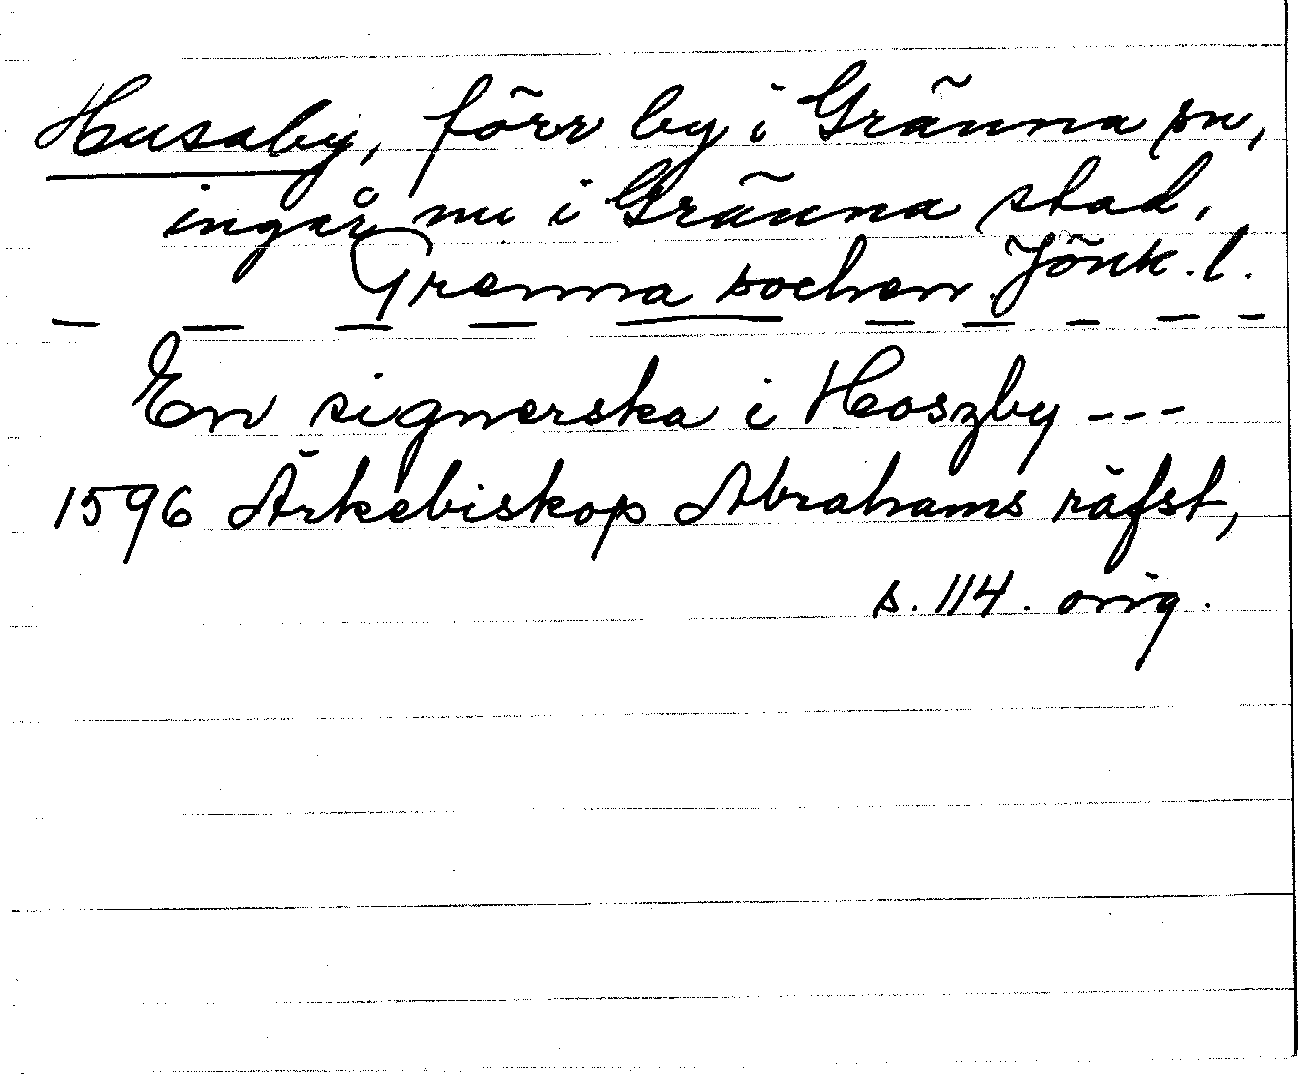 Husaby, förr by i Gränna sn,
ingår nu i Gränna stad,
Jönk. l.
Grenna sochen
En signerska i Hoszby ---
1596 Ärkebiskop Abrahams räfst,
s. 114. orig.